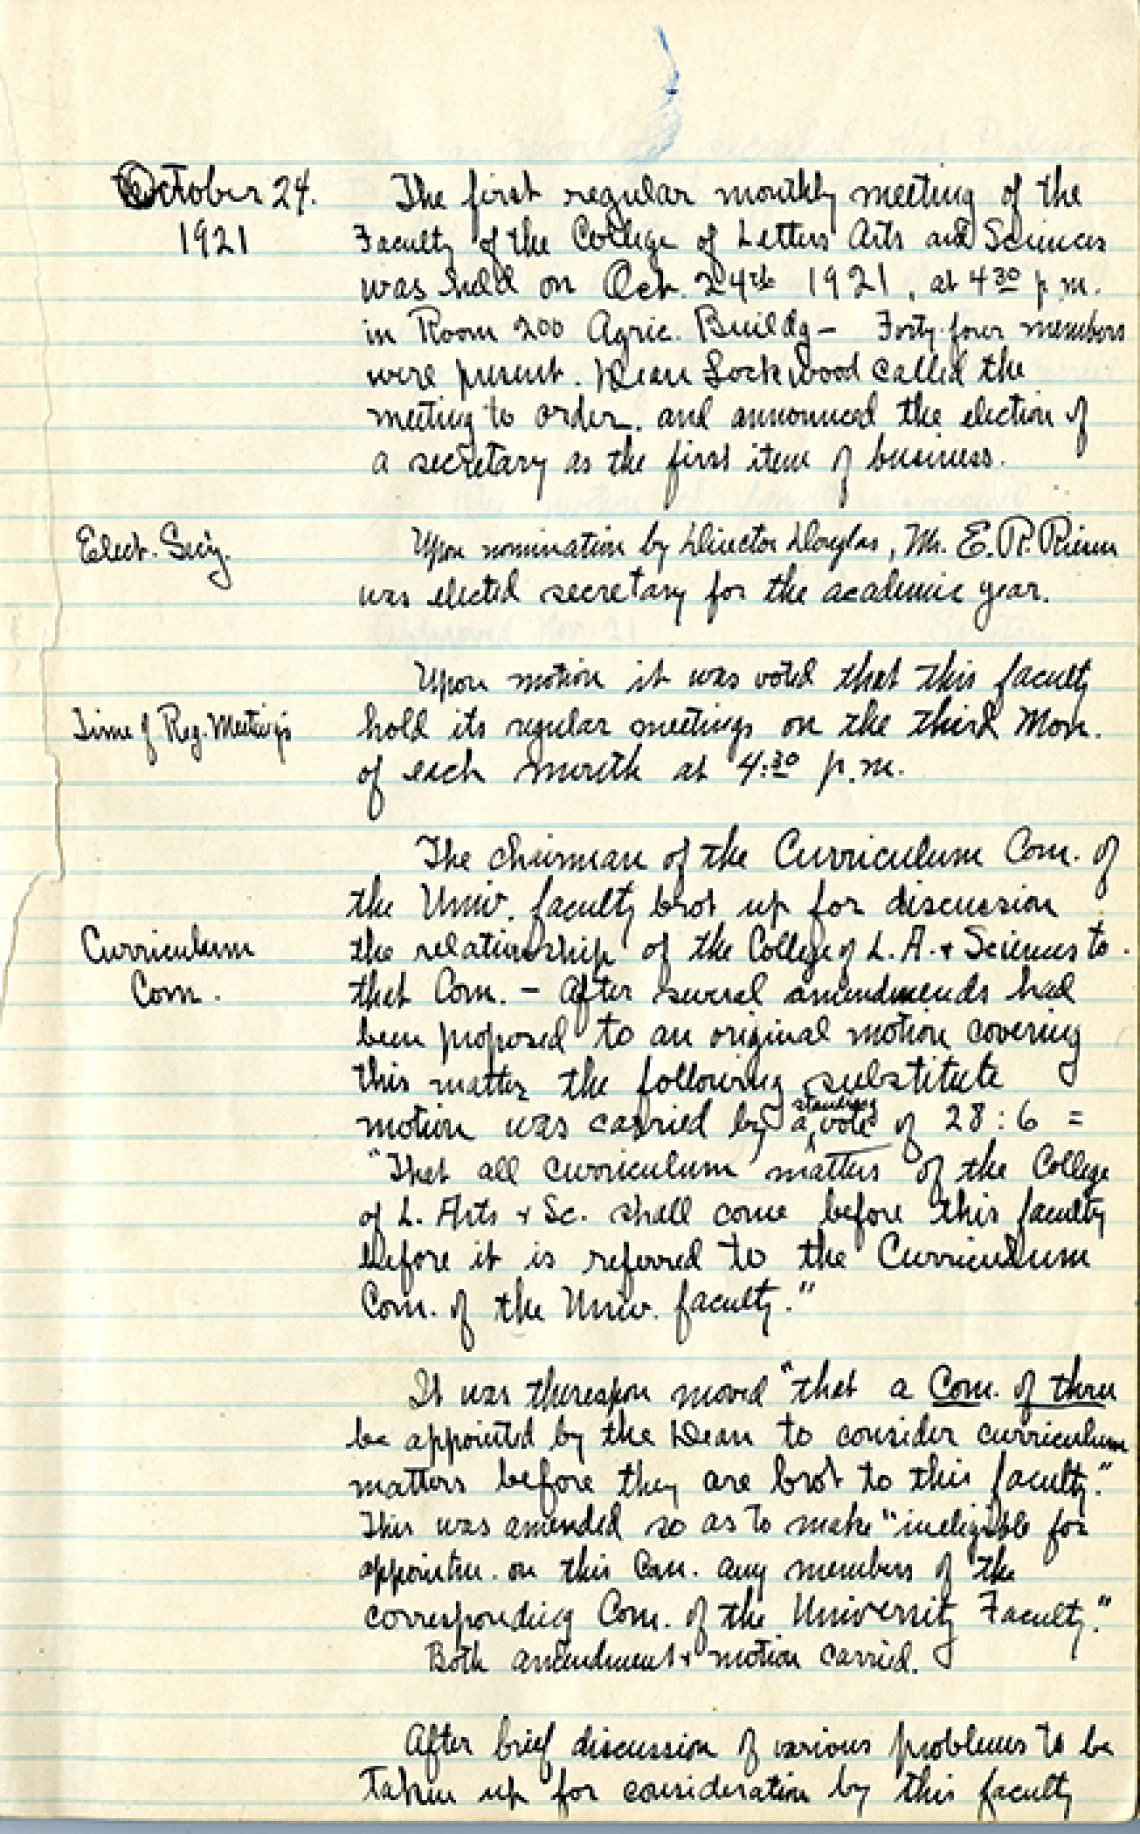 October 24.
1921
The first regular monthly meeting of the
Faculty of the College of Letters Arts and Sciences
was held on Oct. 24th 1921, at 4 30 p.m.
in Room 200 Agric. Buildg – Forty-four members
were present. Dean Lockwood called the
meeting to order, and announced the election of
a secretary as the first item of business.
Elect. Sec'y.
Upon nomination by Director Douglas, Mr. E. R. Riesen
was elected secretary for the academic year.
Upon motion it was voted that this faculty
Time of Reg. Meetings
hold its regular meetings on the third Mon.
of each month at 4:30 p.m.
The chairman of the Curriculum Com. of
the Univ. faculty brot up for discussion
Curriculum
Com.
the relationship of the College of L. A. + Sciences to
that Com. – After several amendments had
been proposed to an original motion covering
this matter the following substitute
motion was carried by a standing vote of 28:6 =
"That all curriculum matters of the College
of L. Arts + Sc. shall come before this faculty
before it is referred to the Curriculum
Com. of the Univ. faculty."
It was thereupon moved "that a Com. of three
be appointed by the Dean to consider curriculum
matters before they are brot to this faculty."
This was amended so as to make "ineligible for
appointm. on this Com. any members of the
corresponding Com. of the University Faculty."
Both amendment + motion carried.
After brief discussion of various problems to be
taken up for consideration by this faculty